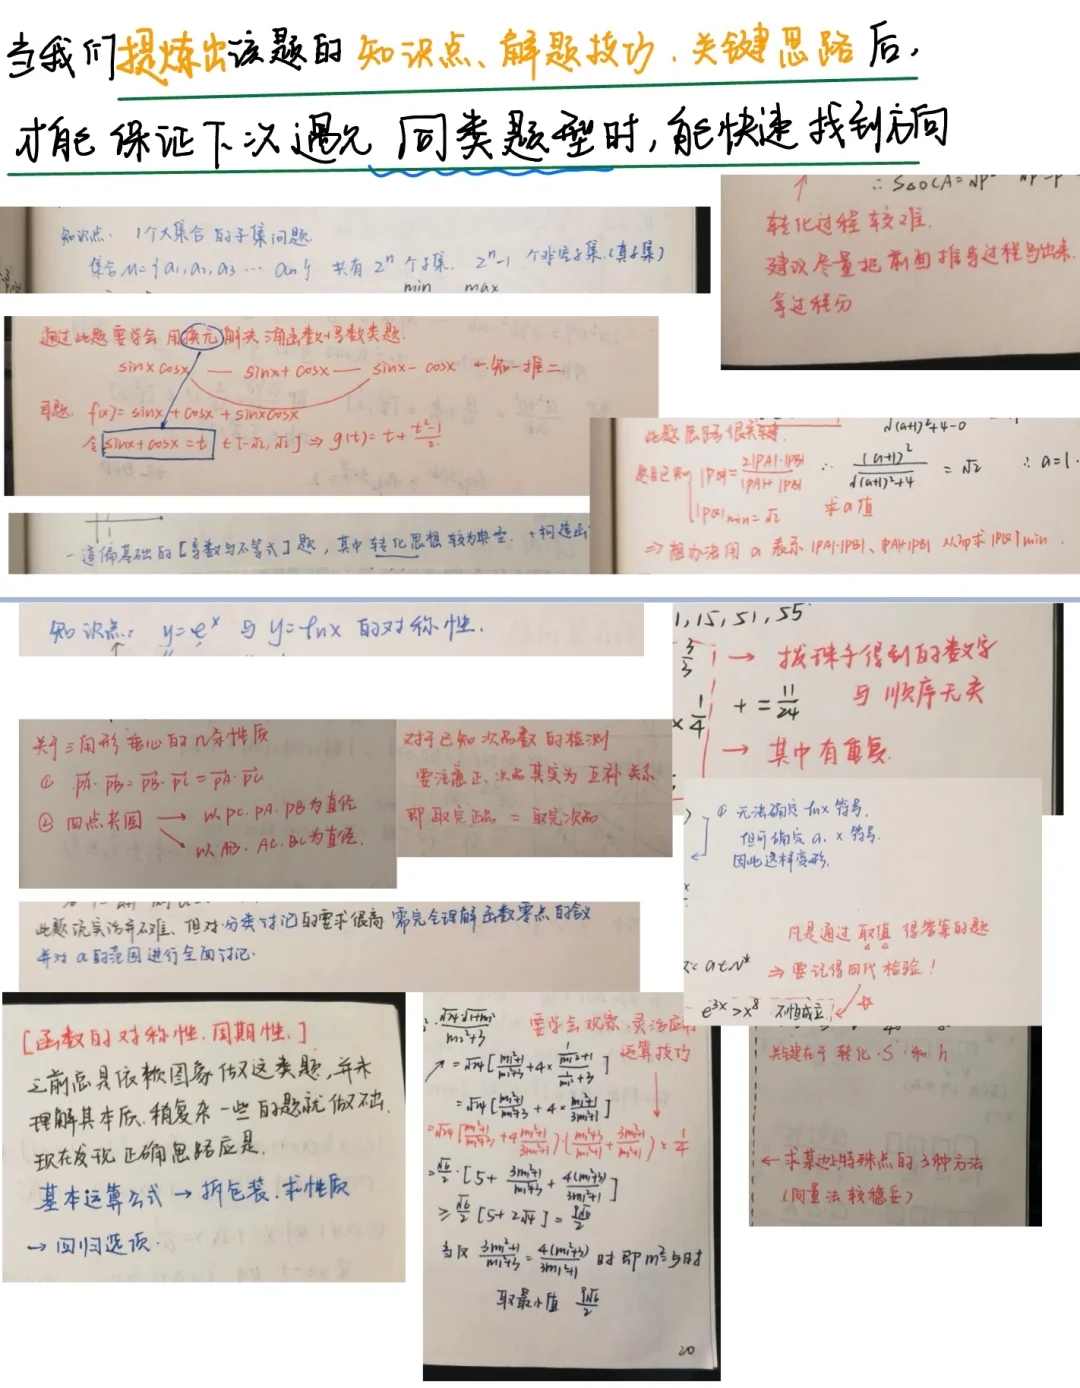 当我们提炼出该题的 知识点、解题技巧、关键思路后，
才能保证下次遇见 同类题型时，能快速找到方向
知识点： 1个大集合的子集问题.
集合M={a₁,a₂,a₃ … aₙ} 共有 2ⁿ 个子集. 2ⁿ-1 个非空子集.(真子集)
min max
∴ S△OCA=
转化过程较难.
建议尽量把前面推导过程写出来.
拿过程分
通过此题要学会 用换元解决 三角函数+导数类题.
sinx cosx — sinx+cosx — sinx-cosx ←知一推二
f(x)= sinx+cosx+sinxcosx
令 sinx+cosx=t t∈[-√2,√2] ⇒ g(t)= t+ (t²-1)/2
此题思路很关键. √(a+1)²+4-0
题目已知 |PQ|= 2|PA|·|PB| / |PA|+|PB| ∴ (a+1)² / √(a+1)²+4 = √2 ∴ a=1.
|PQ|min=√2 求a值
⇒ 想办法用 a 表示 |PA|·|PB|、|PA|+|PB| 从而求|PQ|min
一道偏基础的[导数与不等式]题，其中转化思想较为典型. +构造函
知识点： y=eˣ 与 y=lnx 的对称性.
1,15,51,55
3/3 → 拨珠子得到的数字
与顺序无关
×1/4 + = 11/24
→ 其中有重复
关于三角形垂心的几条性质
① PA·PB=PB·PC=PA·PC
② 四点共圆 → 以PC.PA.PB为直径
以AB.AC.BC为直径.
对于已知次品数的检测
要注意正、次品其实为互补关系
即取完正品 = 取完次品
① 无法确定 lnx 符号.
但可确定 a、x 符号.
因此这样变形.
凡是通过取值得答案的题
a∈N* ⇒ 要记得回代检验！
e³ˣ>x⁸ 不恒成立!
此题说实话并不难、但对分类讨论的要求很高 需完全理解函数零点的含义
并对 a的范围进行全面讨论.
[函数的对称性.周期性.]
之前总是依赖图象做这类题，并未
理解其本质.稍复杂一些的题就做不出.
现在发现正确思路应是.
基本运算公式 → 拆包装.求性质
→ 回归选项.
要学会观察.灵活应用
运算技巧
=√24[ m²+1/m²+3 + 4× (1/m²+1)/(1/m²+3) ]
=√24[ m²+1/m²+3 + 4× m²+1/3m²+1 ]
=√24[ m²+1/m²+3 + 4 m²+1/3m²+1 ]·( m²+3/m²+1 + 3m²+1/m²+1 )× 1/4
= √6/2·[5+ 3m²+1/m²+3 + 4(m²+3)/3m²+1 ]
≥ √6/2 [5+2√4]= 9√6/2
当仅 3m²+1/m²+3 = 4(m²+3)/3m²+1 时 即m²=5时
取最小值 9√6/2
20
关键在于 转化.S 和 h
← 求某边上特殊点的3种方法
(向量法较稳妥)